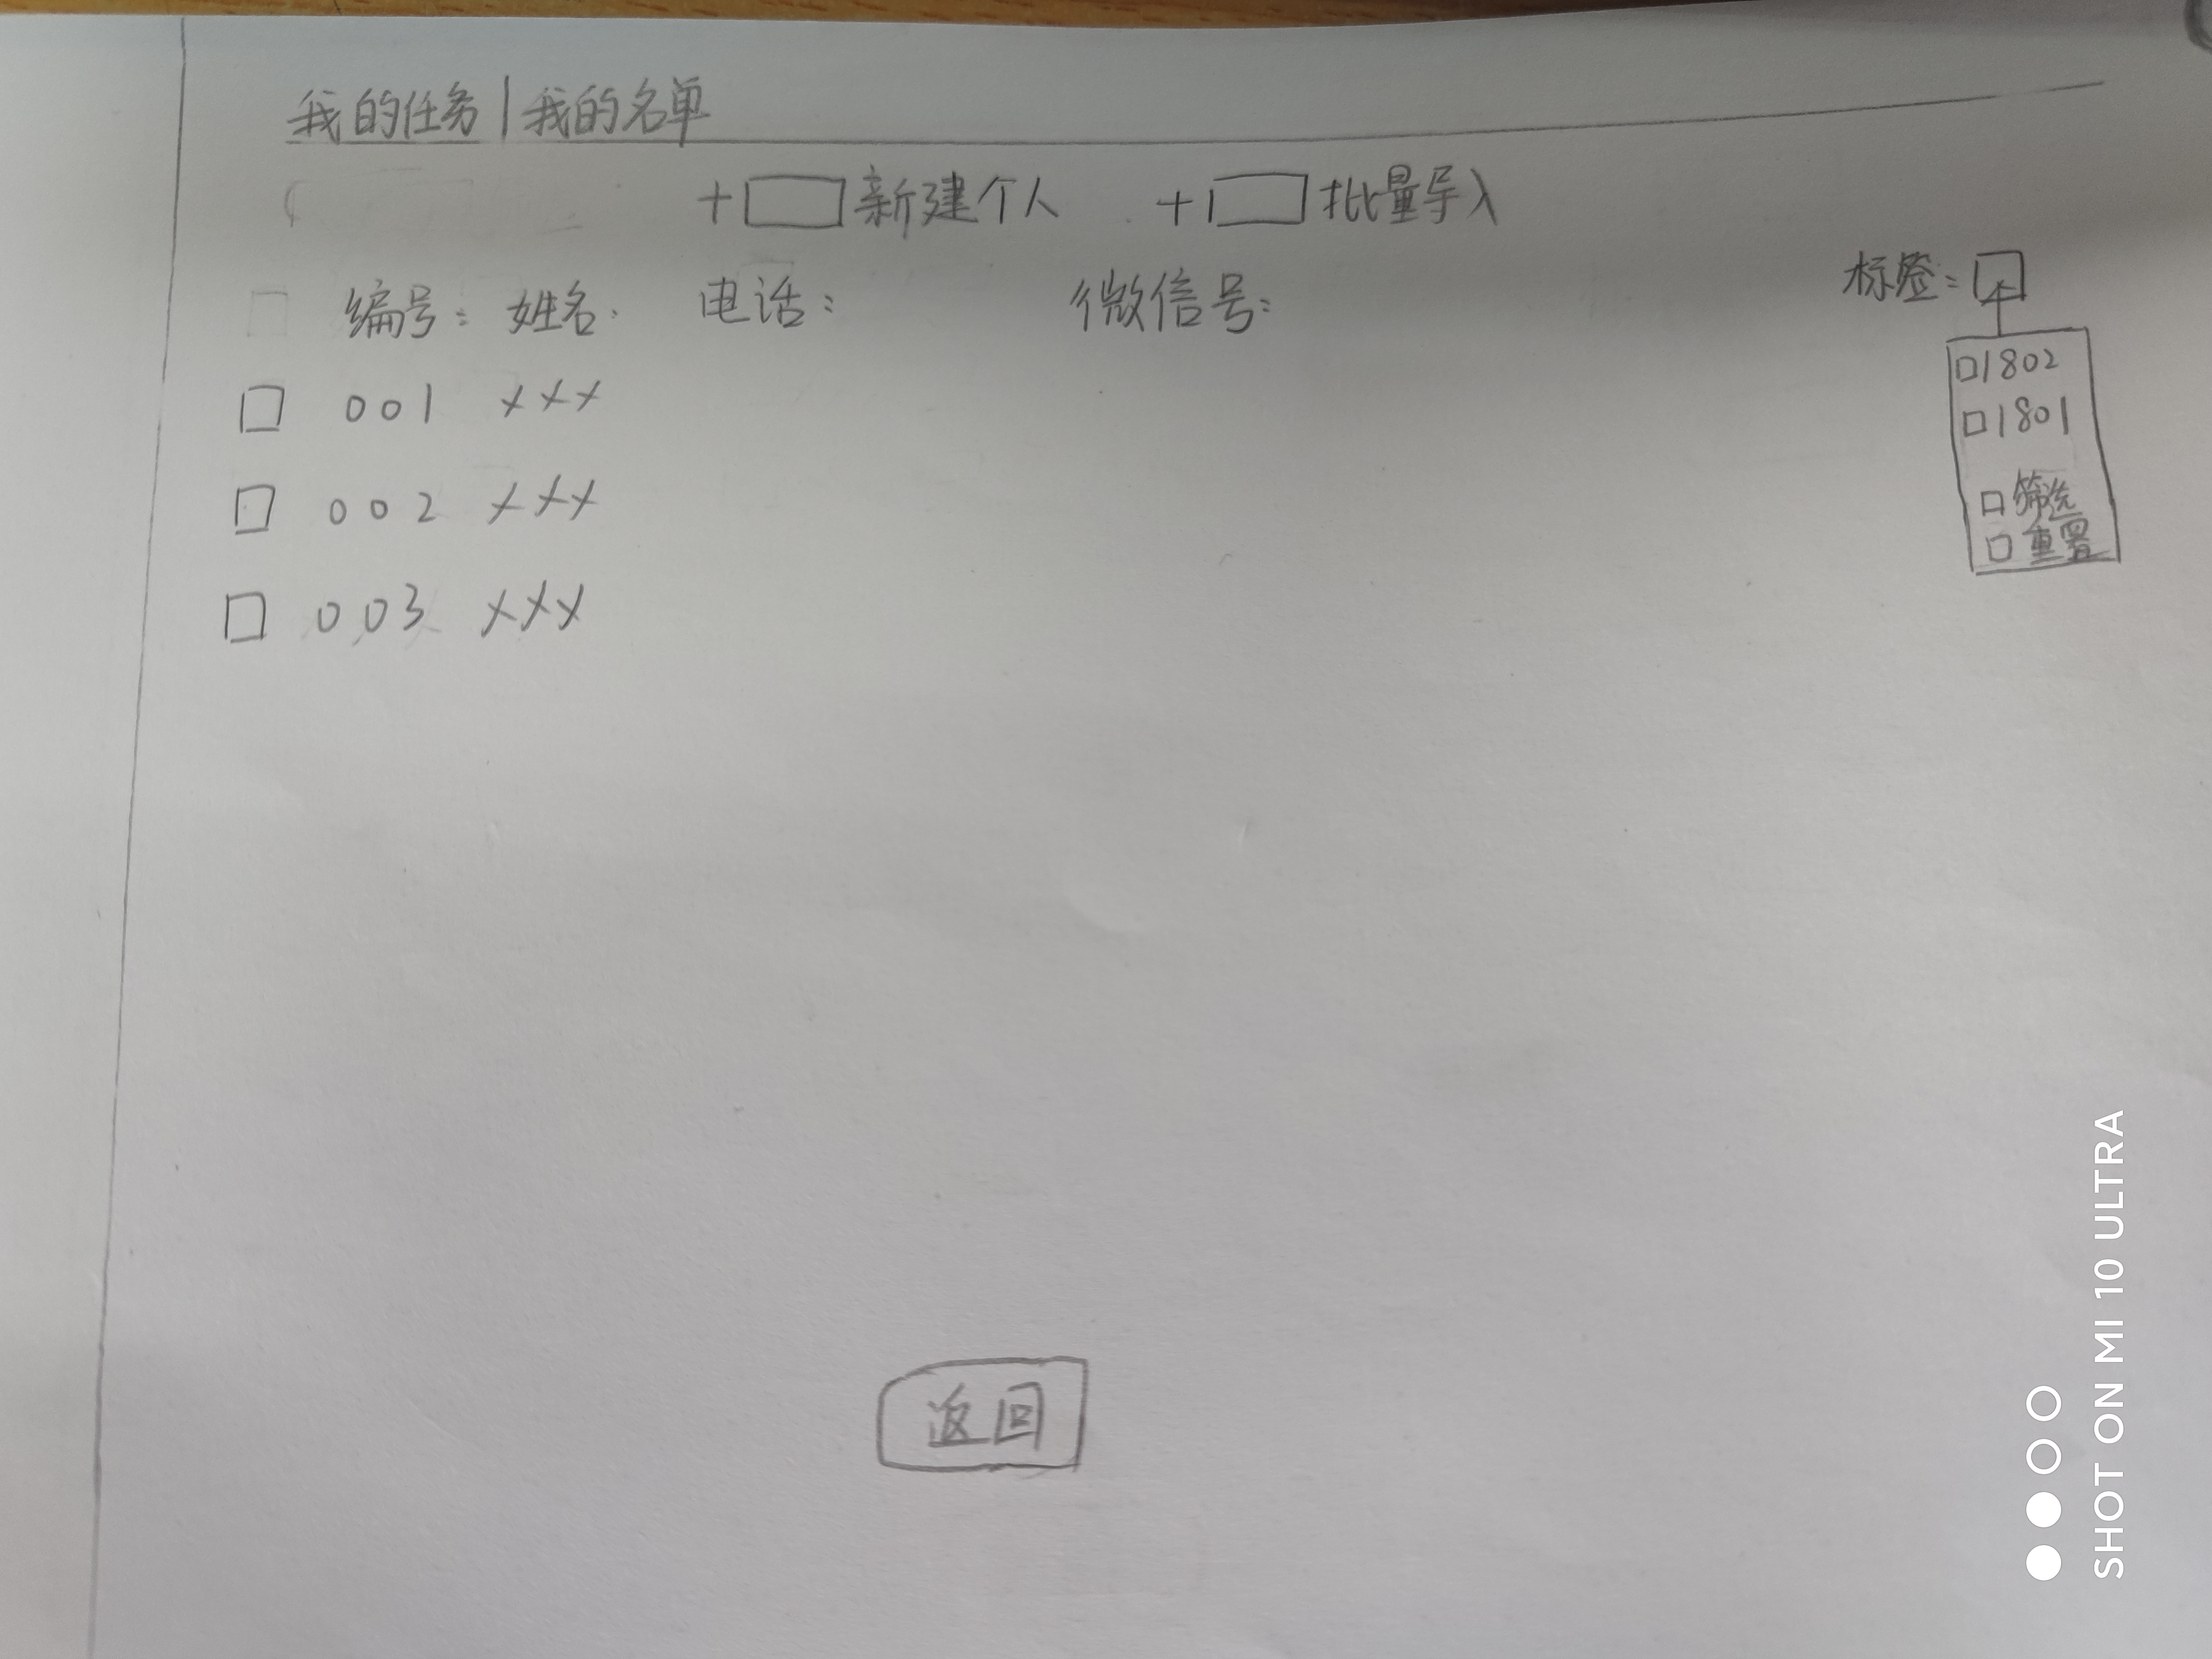 我的任务|我的名单
+ 新建个人 + 批量导入
编号: 姓名. 电话: 微信号: 标签:
001 xxx
002 xxx
003 xxx
1802
1801
筛选
重置
返回
SHOT ON MI 10 ULTRA